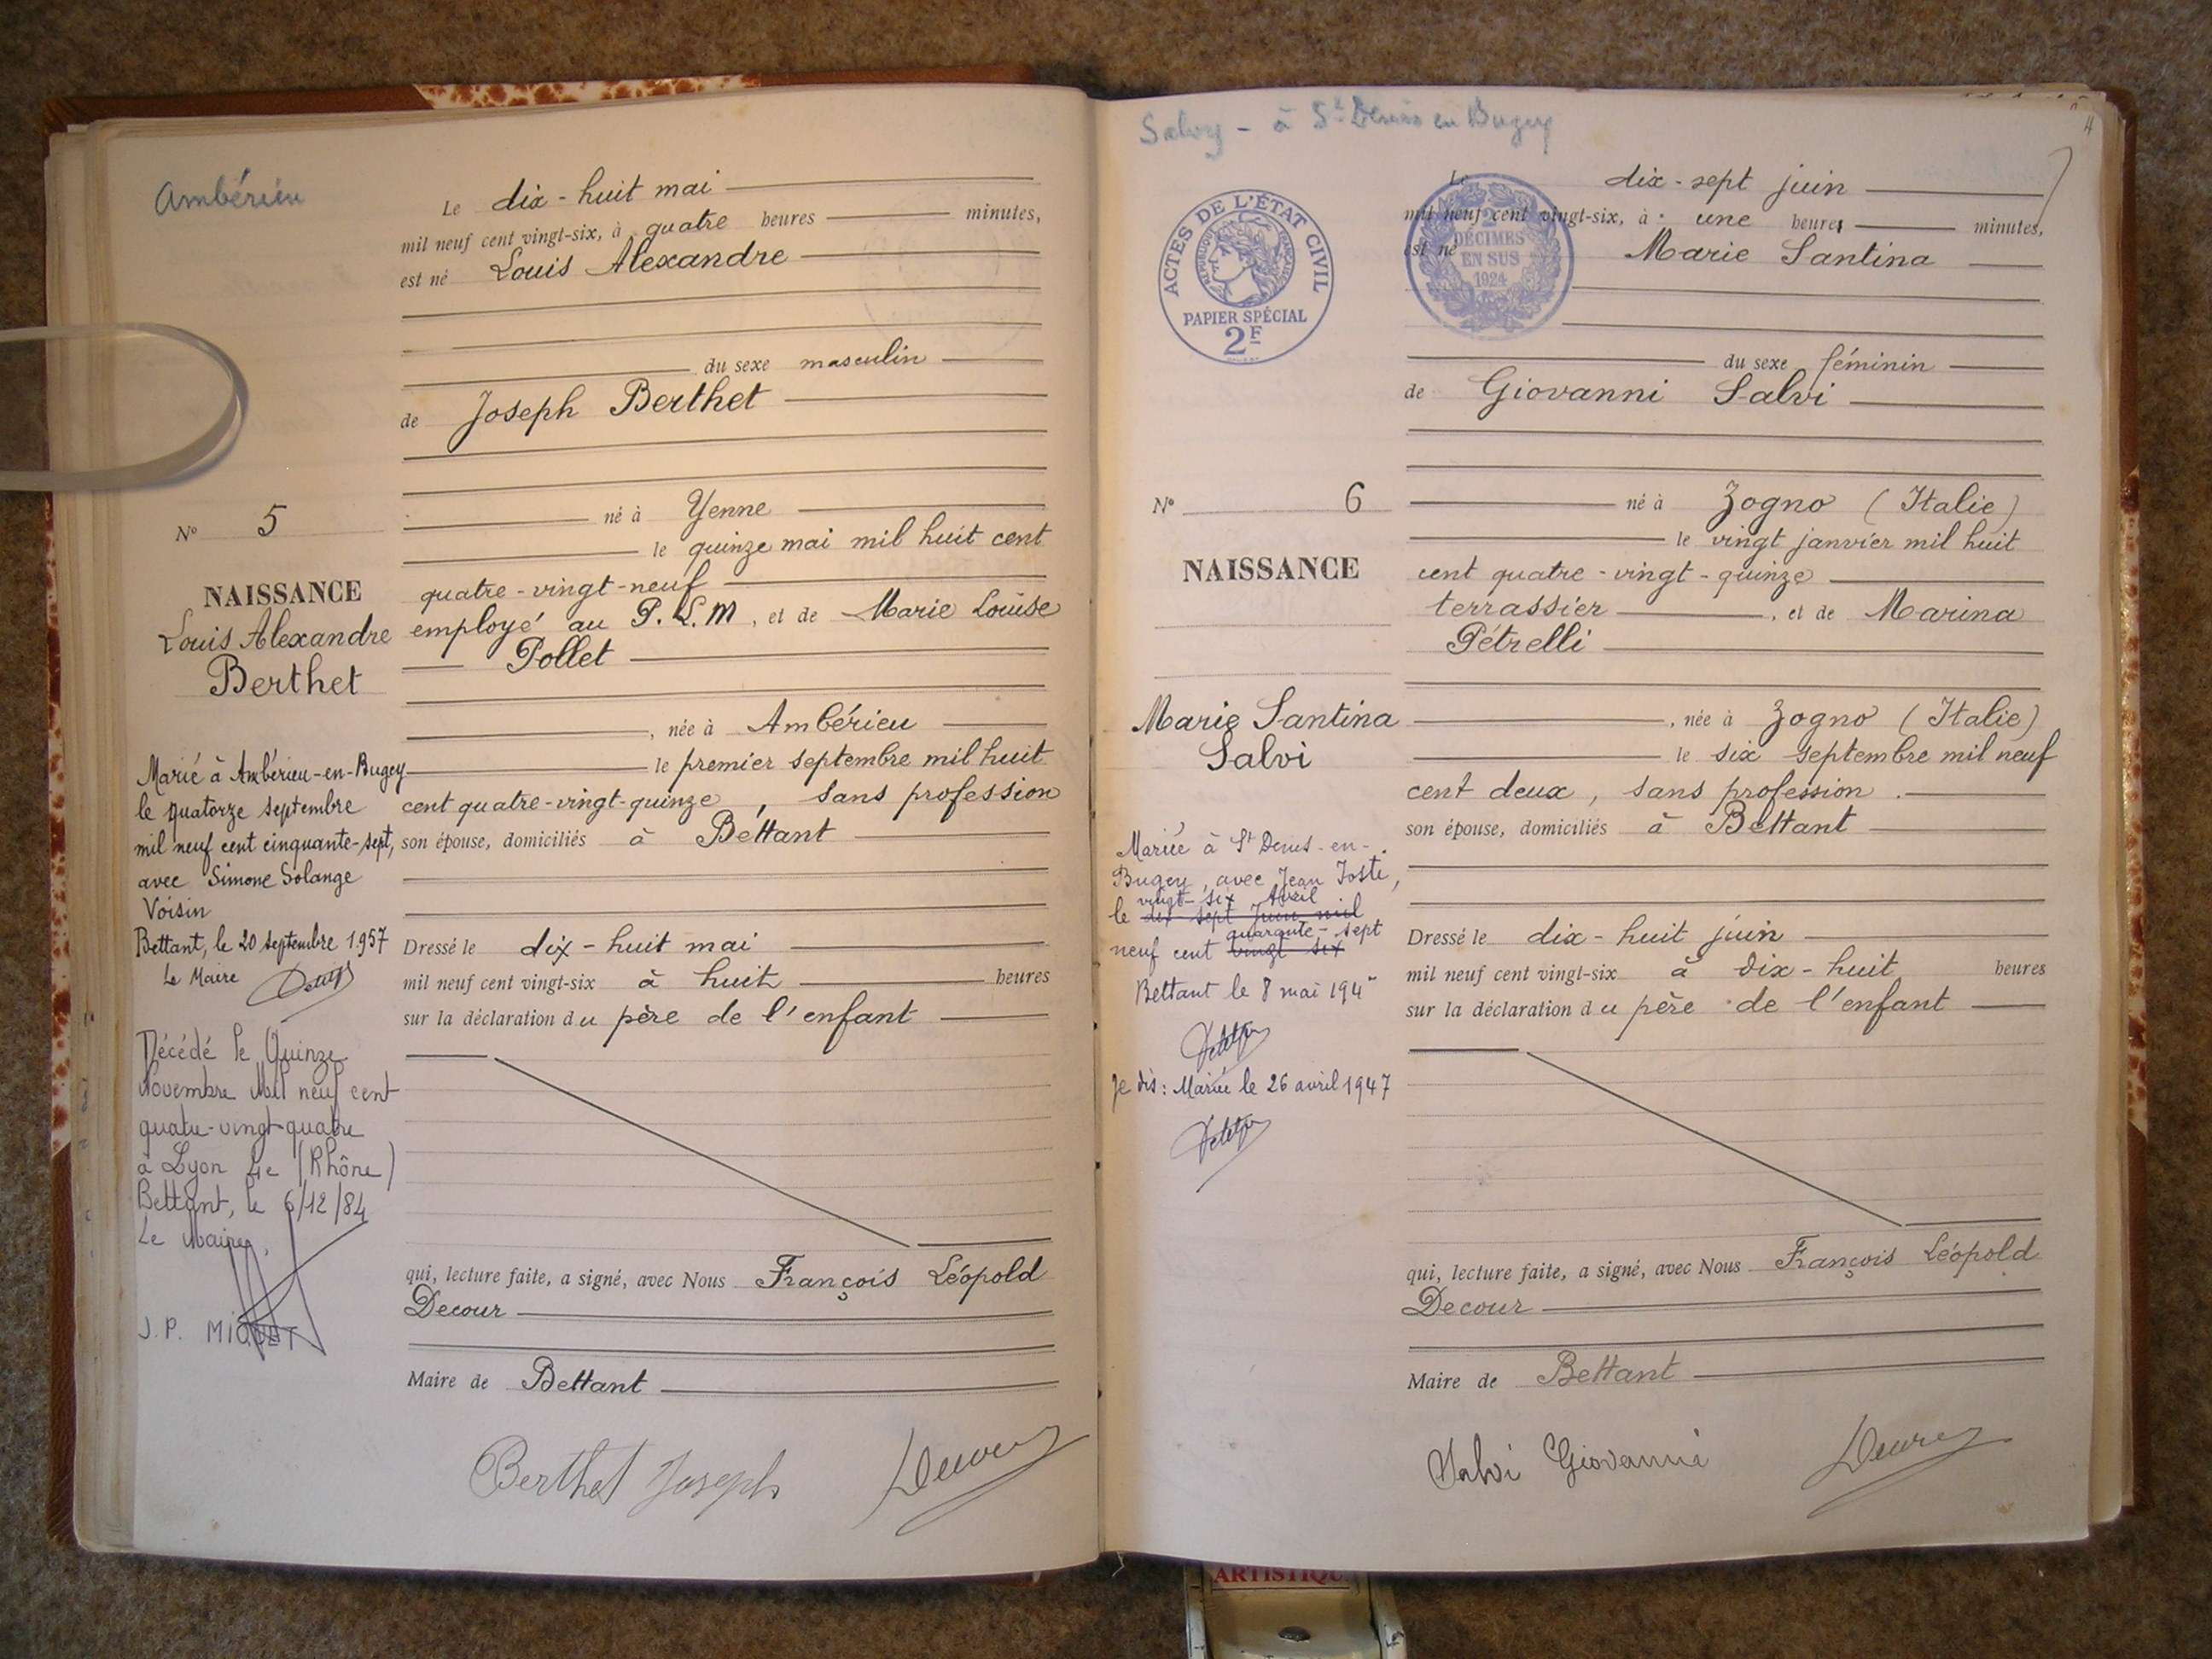 Ambérieu
Le dix-huit mai
mil neuf cent vingt-six, à quatre heures minutes,
est né Louis Alexandre
du sexe masculin
de Joseph Berthet
né à Yenne
le quinze mai mil huit cent
quatre-vingt-neuf
employé au P.L.M, et de Marie Louise
Pollet
, née à Ambérieu
le premier septembre mil huit
cent quatre-vingt-quinze, sans profession
son épouse, domiciliés à Bettant
Dressé le dix-huit mai
mil neuf cent vingt-six à huit heures
sur la déclaration du père de l'enfant
qui, lecture faite, a signé, avec Nous François Léopold
Decour
Maire de Bettant
Berthet Joseph
N° 5
NAISSANCE
Louis Alexandre
Berthet
Marié à Ambérieu-en-Bugey
le quatorze septembre
mil neuf cent cinquante-sept,
avec Simone Solange
Voisin
Bettant, le 20 septembre 1957
Le Maire
Décédé le Quinze
Novembre Mil neuf cent
quatre-vingt-quatre
à Lyon 4e (Rhône)
Bettant, le 6/12/84
Le Maire,
J.P. MIQUET
Salvy - à St Denis en Bugey
4
ACTES DE L'ÉTAT CIVIL
RÉPUBLIQUE FRANÇAISE
PAPIER SPÉCIAL
2F
2
DÉCIMES
EN SUS
1924
Le dix-sept juin
mil neuf cent vingt-six, à une heures minutes,
est né Marie Santina
du sexe féminin
de Giovanni Salvi
né à Zogno (Italie)
le vingt janvier mil huit
cent quatre-vingt-quinze
terrassier, et de Marina
Pétrelli
, née à Zogno (Italie)
le six septembre mil neuf
cent deux, sans profession.
son épouse, domiciliés à Bettant
Dressé le dix-huit juin
mil neuf cent vingt-six à dix-huit heures
sur la déclaration du père de l'enfant
qui, lecture faite, a signé, avec Nous François Léopold
Decour
Maire de Bettant
Salvi Giovanni
N° 6
NAISSANCE
Marie Santina
Salvi
Mariée à St Denis-en-
Bugey, avec Jean Joste,
vingt-six Avril
le dix sept Juin mil
quarante-sept
neuf cent vingt six
Bettant le 8 mai
Je dis: Mariée le 26 avril 1947
ARTISTIQU